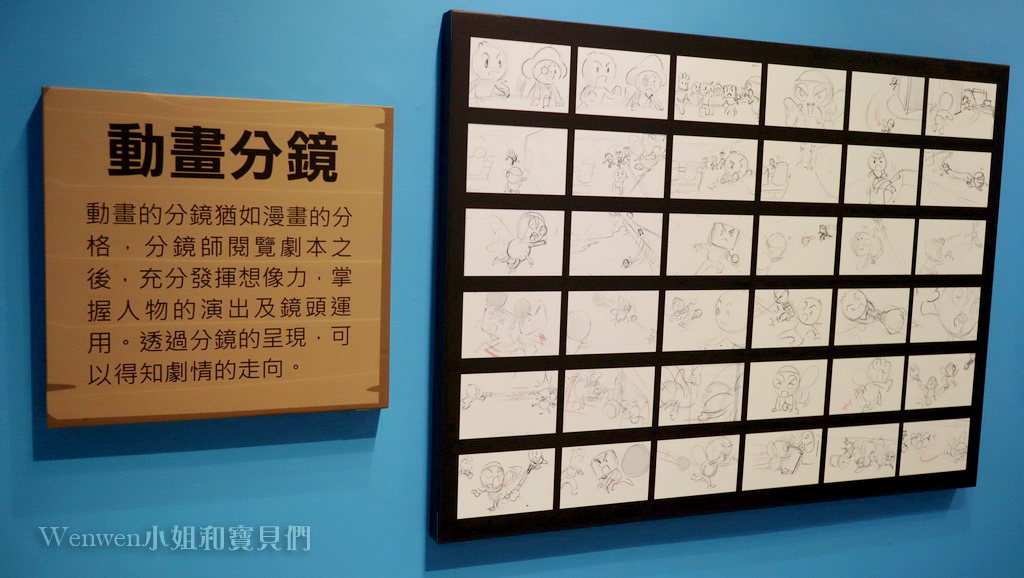 動畫分鏡
動畫的分鏡猶如漫畫的分
格，分鏡師閱覽劇本之
後，充分發揮想像力，掌
握人物的演出及鏡頭運
用。透過分鏡的呈現，可
以得知劇情的走向。
Wenwen小姐和寶貝們